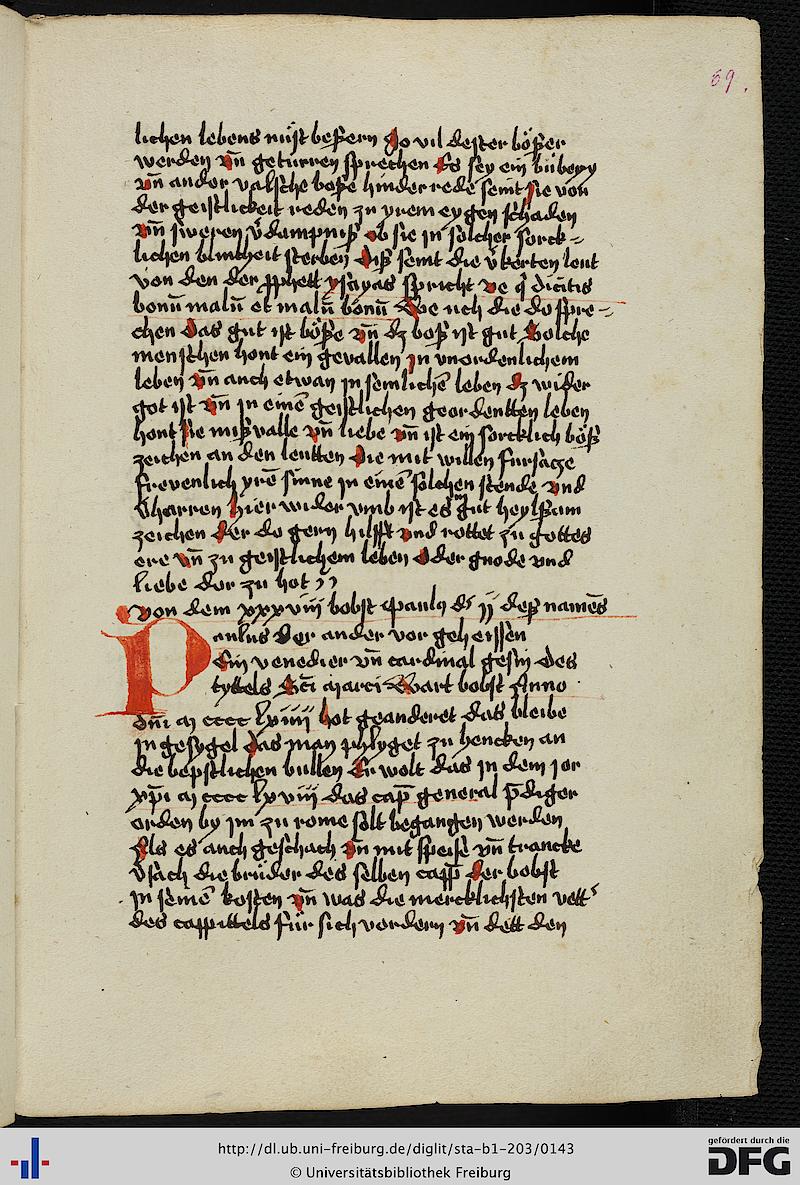 69.
lichen lebens müst beßern So vil dester bößer
werden vn̄ geturren sprechen Es sey ein bübeyy
vn̄ ander valsche boße hinder rede semt sie von
der geistlickeit reden zu yrem eygen schaden
vn̄ sweren v̓dampniß ob sie in solcher sorck-
lichen blintheit sterben Diß semt die v̓kerten leut
von den der ꝓphett ysayas spricht ve q̓ dicitis
bonū malū et malū bonū We uch die do spre-
chen das gut ist böße vn̄ dz boß ist gut Solche
menschen hont ein gevallen in vnordenlichem
leben vn̄ auch etwan in semlichē leben dz wider
got ist vn̄ in einē geistlichen geordentten leben
hont sie mißvalle vn̄ liebe vn̄ ist ein sorcklich böß
zeichen an den leutten Die mit willen fursacze
frevenlich yrē sinne in einē solchen stende vnd
v̓harren hier wider vmb ist es gut heylßam
zeichen der do gern hilfft vnd rottet zu gottes
ere vn̄ zu geistlichem leben oder gnode vnd
liebe dor zu hot
von dem xxxviij bobst Paulꝯ d̓ ij deß namēs
Paulus der ander vor geheissen
Ein venedier vn̄ cardinal gesin des
tyttels Scī Marci Wart bobst Anno
dn̄i M cccc lxiiij hot geanderet das bleibe
in gesygel das man phlyget zu hencken an
die bepstlichen bullen Er wolt das in dem ior
xp̄i M cccc lxviij das cap̄ general p̄diger
orden by im zu rome solt begangen werden
Als es auch geschach vn̄ mit speise vn̄ trancke
v̓sach die brüder des selben capp̄ der bobst
in seinē kosten vn̄ was die mercklichsten vett̓
des cappittels für sich vordern vn̄ dett den
http://dl.ub.uni-freiburg.de/diglit/sta-b1-203/0143
© Universitätsbibliothek Freiburg
gefördert durch die
DFG